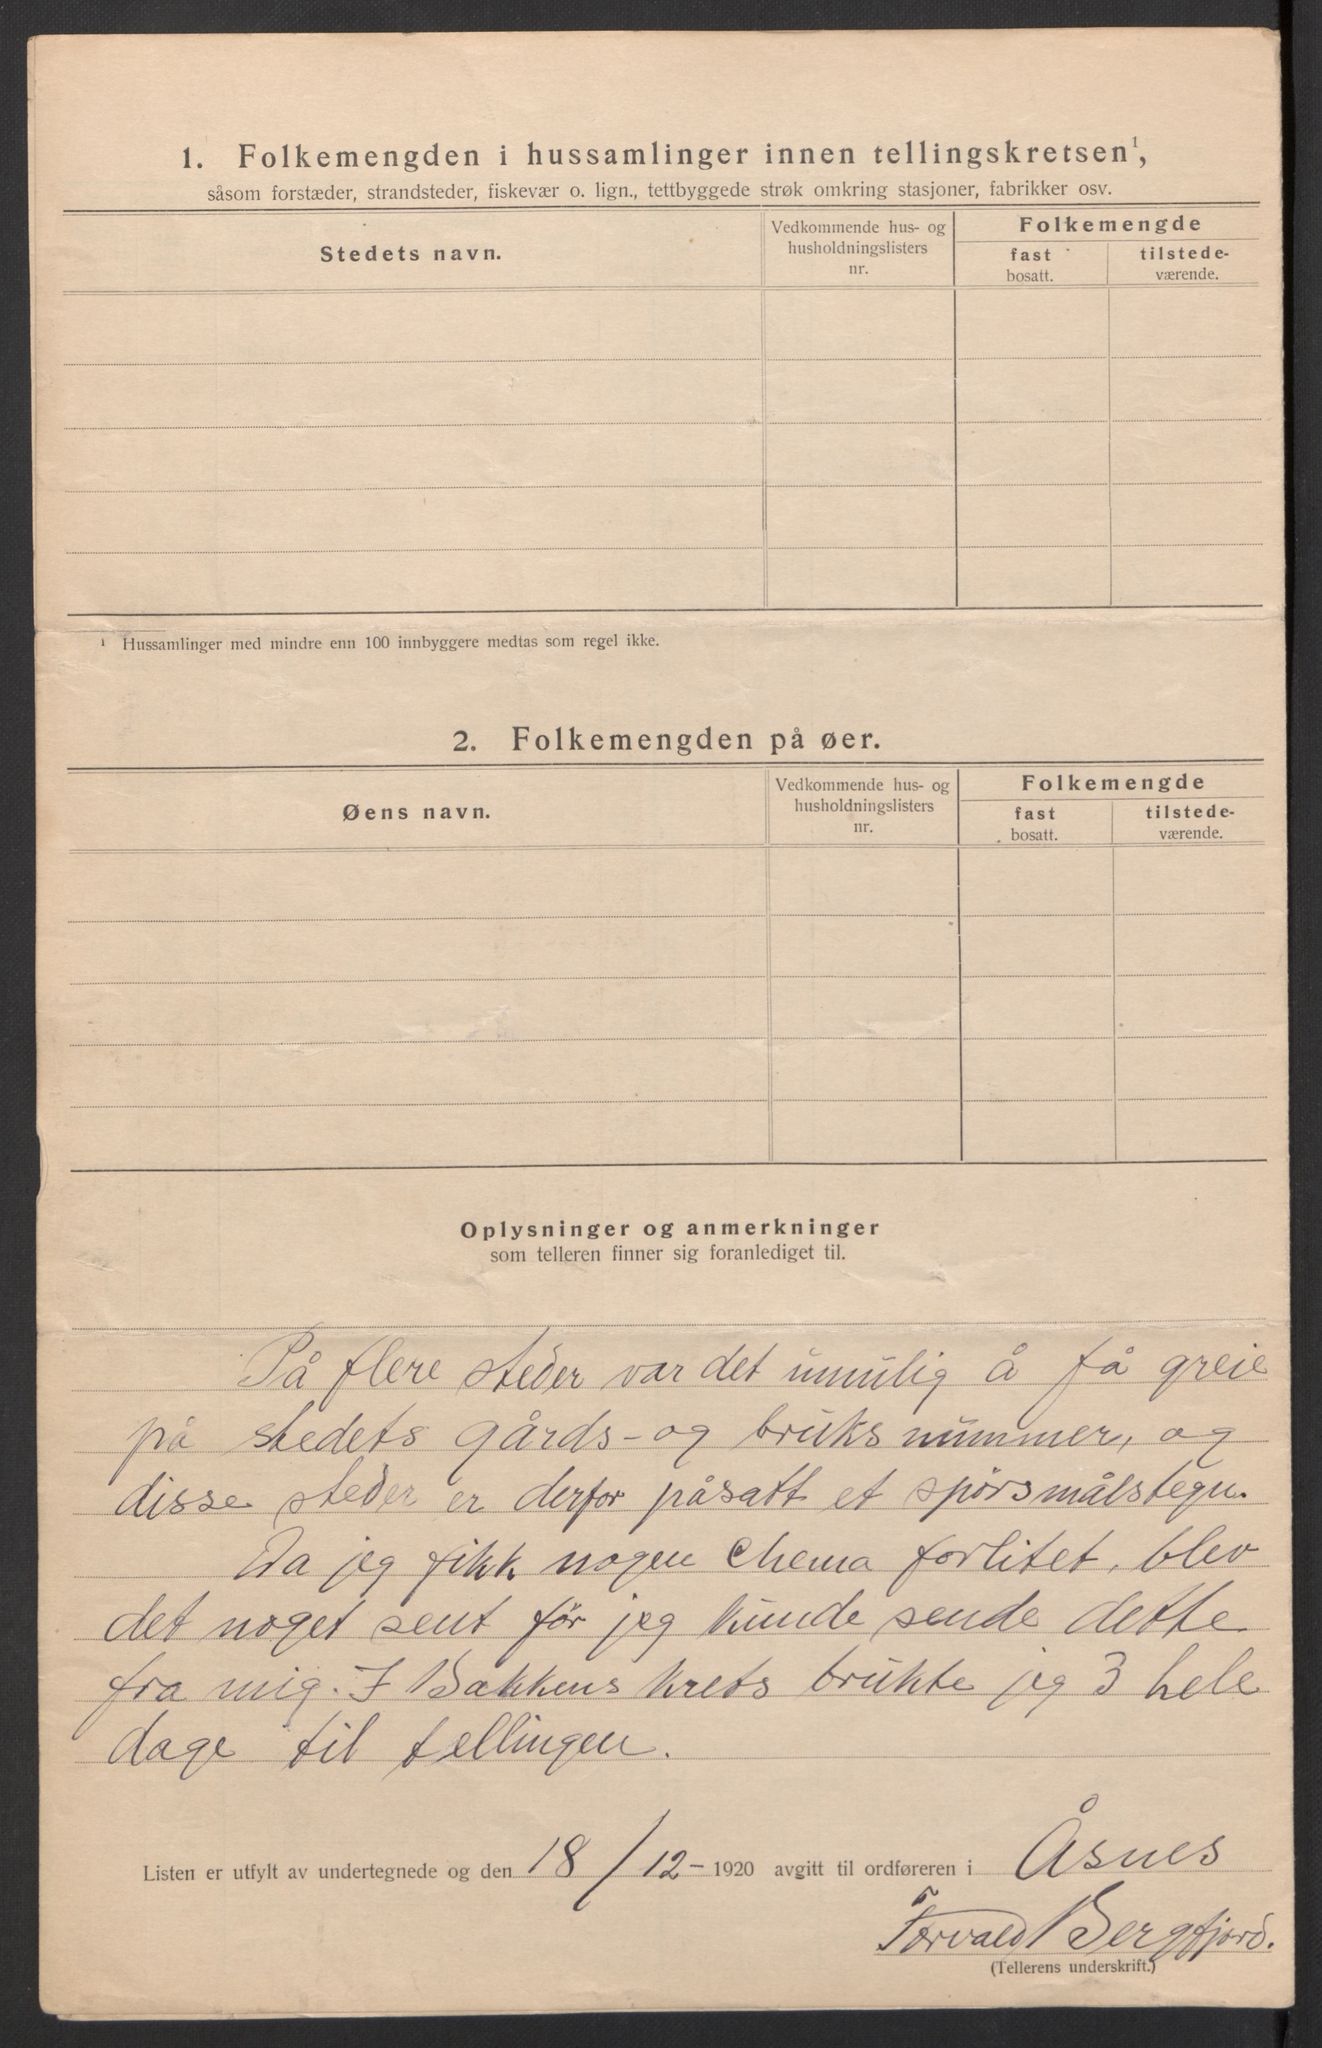 1. Folkemengden i hussamlinger innen tellingskretsen¹,
såsom forstæder, strandsteder, fiskevær o. lign., tettbyggede strøk omkring stasjoner, fabrikker osv.
Stedets navn.
Vedkommende hus- og
husholdningslisters
nr.
Folkemengde
fast
bosatt.
tilstede-
værende.
¹ Hussamlinger med mindre enn 100 innbyggere medtas som regel ikke.
2. Folkemengden på øer.
Øens navn.
Vedkommende hus- og
husholdningslisters
nr.
Folkemengde
fast
bosatt.
tilstede-
værende.
Oplysninger og anmerkninger
som telleren finner sig foranlediget til.
På flere steder var det umulig å få greie
på stedets gårds- og bruksnummer, og
disse steder er derfor påsatt et spörsmålstegn.
Da jeg fikk nogen Chema forlitet, blev
det noget sent för jeg kunde sende dette
fra mig. I Bakkens krets brukte jeg 3 hele
dage til tellingen.
Listen er utfylt av undertegnede og den 18/12- 1920 avgitt til ordføreren i Åsnes
Torvald Bergfjord.
(Tellerens underskrift.)